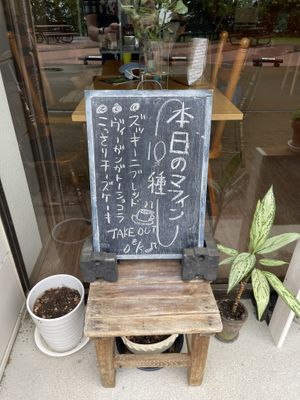 本日のマフィン
10種
◎ズッキーニブレッド
◎ヴィーガンガトーショコラ
◎こっさりチーズケーキ
TAKE OUT
も
O.K♪